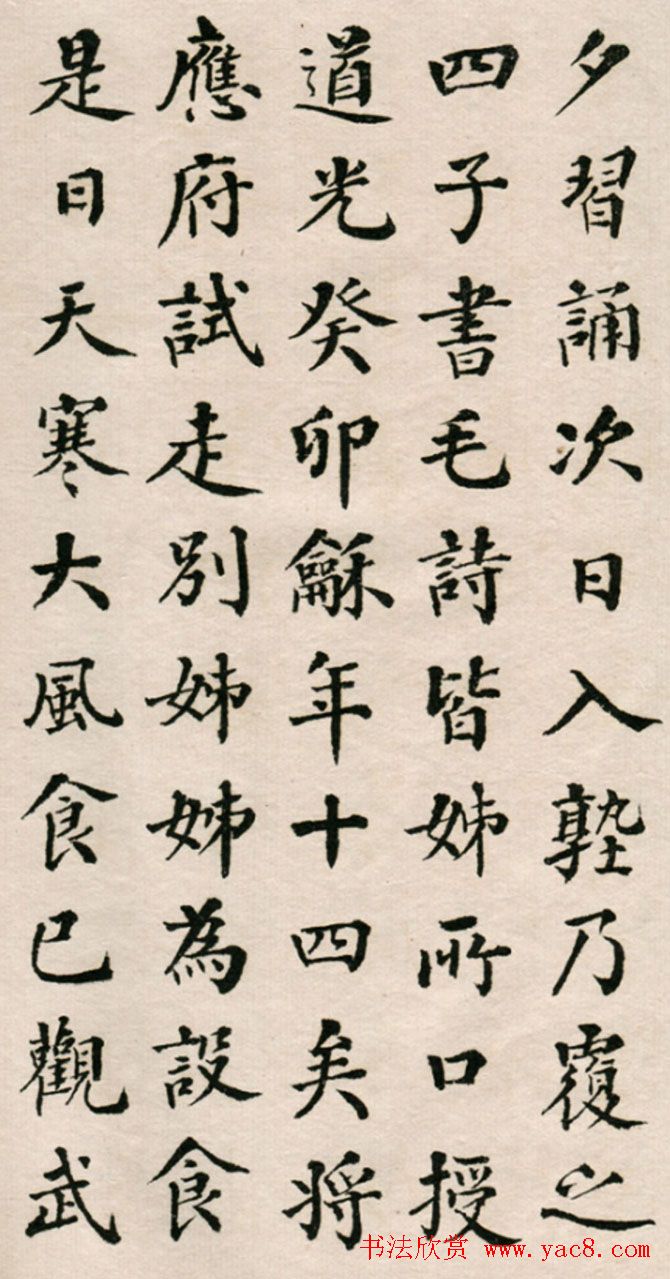 夕習誦次日入塾乃覆之
四子書毛詩皆姊所口授
道光癸卯龢年十四矣將
應府試走別姊姊為設食
是日天寒大風食已觀武
书法欣赏 www.yac8.com